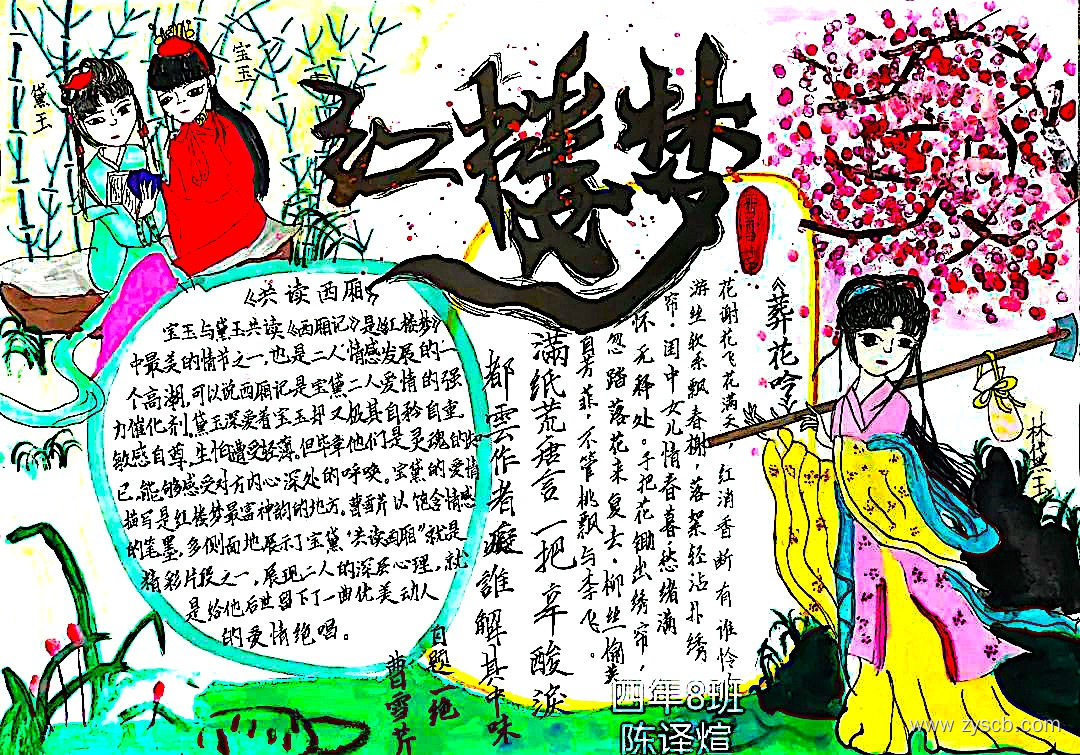 红楼梦
黛玉
宝玉
《共读西厢》
宝玉与黛玉共读《西厢记》是《红楼梦》
中最美的情节之一,也是二人情感发展的一
个高潮,可以说西厢记是宝黛二人爱情的强
力催化剂。黛玉深爱着宝玉却又极其自矜自重,
敏感自尊,生怕遭受轻薄,但毕竟他们是灵魂的知
己,能够感受对方内心深处的呼唤。宝黛的爱情
描写是红楼梦最富神韵的地方。曹雪芹以饱含情感
的笔墨,多侧面地展示了宝黛“共读西厢”就是
精彩片段之一,展现二人的深层心理,就
是给他后世留下了一曲优美动人
的爱情绝唱。
《葬花吟》
花谢花飞花满天,红消香断有谁怜,
游丝软系飘春榭,落絮轻沾扑绣
帘,闺中女儿惜春暮愁绪满
怀无释处。手把花锄出绣帘,
忍踏落花来复去,柳丝榆荚
自芳菲,不管桃飘与李飞。
满纸荒唐言一把辛酸淚
都雲作者癡誰解其中味
自题一绝
曹雪芹
林黛玉
四年8班
陈译煊
www.zyscb.com